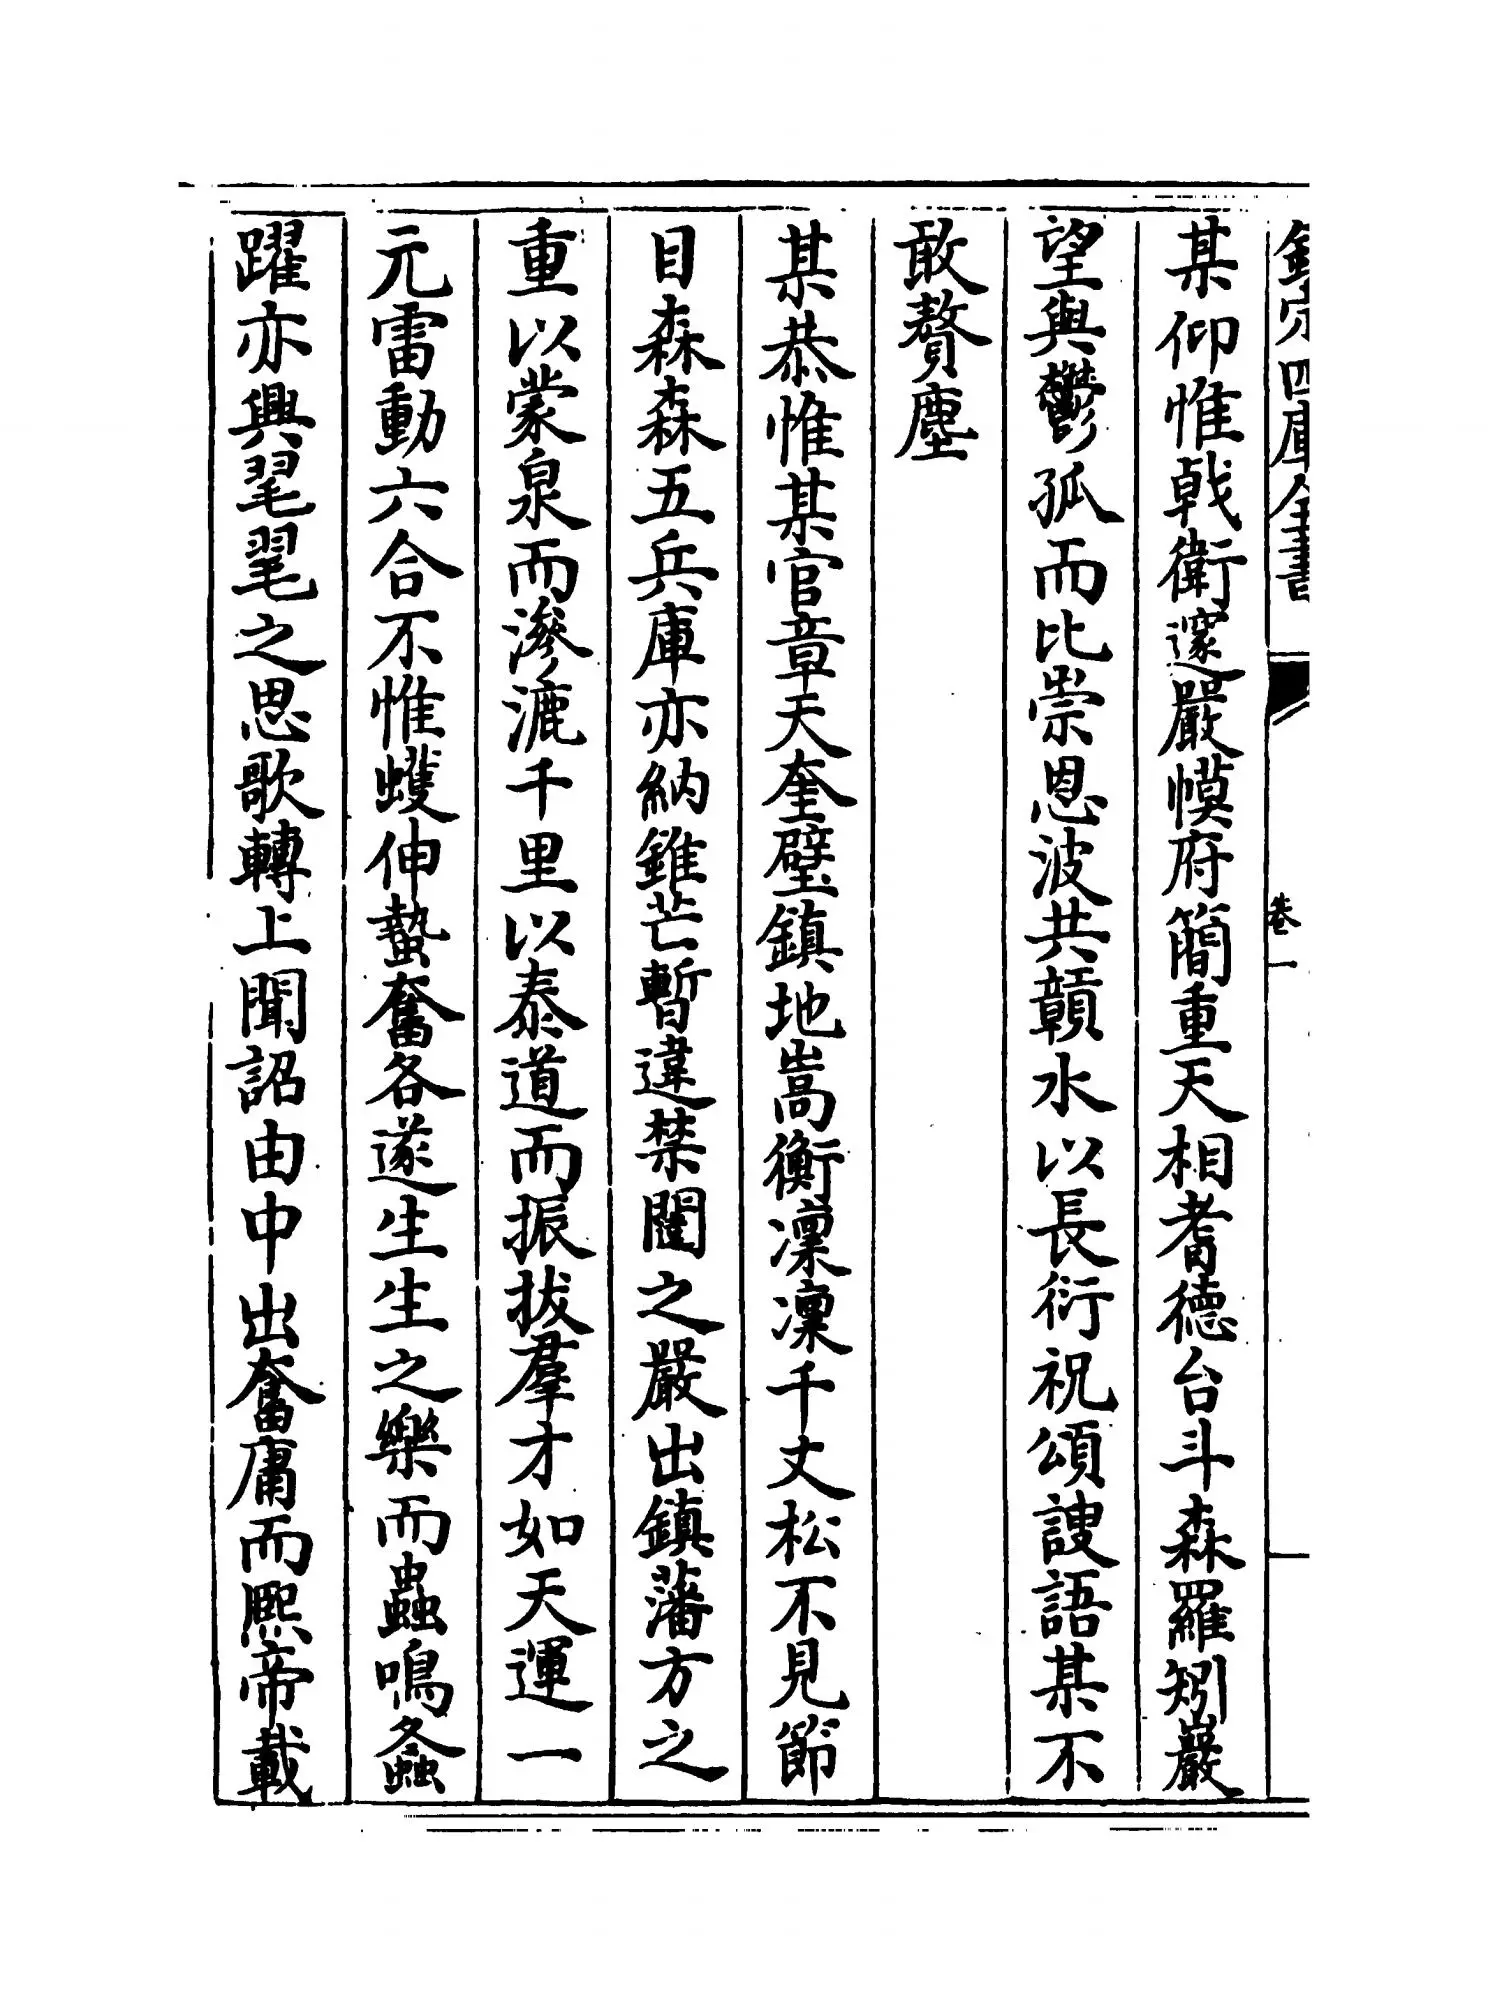 欽定四庫全書
卷一
某仰惟戟衛邃嚴幙府簡重天相耆德台斗森羅矧巖
望與鬱孤而比崇恩波共贑水以長衍祝頌謏語某不
敢贅塵
某恭惟某官章天奎璧鎮地嵩衡凜凜千丈松不見節
目森森五兵庫亦納錐芒暫違禁闥之嚴出鎮藩方之
重以蒙泉而滲漉千里以泰道而振拔羣才如天運一
元雷動六合不惟蠖伸蟄奮各遂生生之樂而蟲鳴螽
躍亦興毣毣之思歌轉上聞詔由中出奮庸而熙帝載